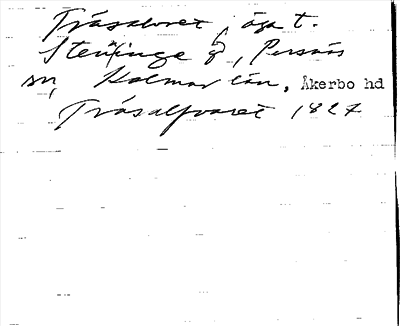 Träsalvret, äga t.
Stenninge g, Persnäs
sn, Kalmar län, Åkerbo hd
Träsalfvaret 1827